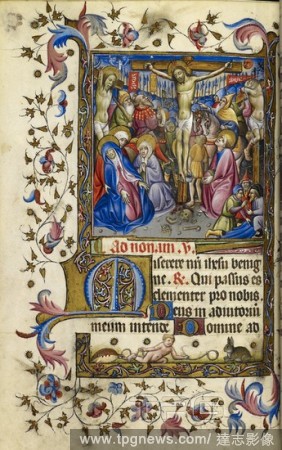 ad nonam. v.
Miserere nr̄i ihesu benig
ne. R. Qui passus es
clementer pro nobis.
Deus in adiutoriū
meum intende Domine ad
www.tpgnews.com/達志影像